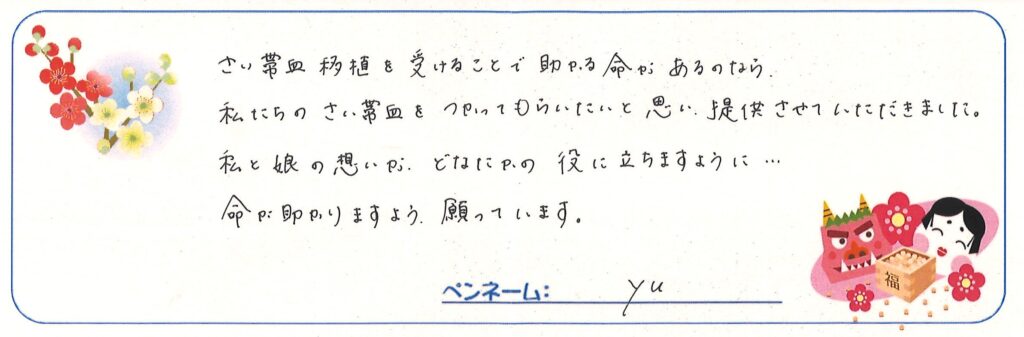 さい帯血移植を受けることで助かる命があるのなら、
私たちのさい帯血をつかってもらいたいと思い、提供させていただきました。
私と娘の想いが、どなたかの役に立ちますように…
命が助かりますよう、願っています。
ペンネーム: yu
福